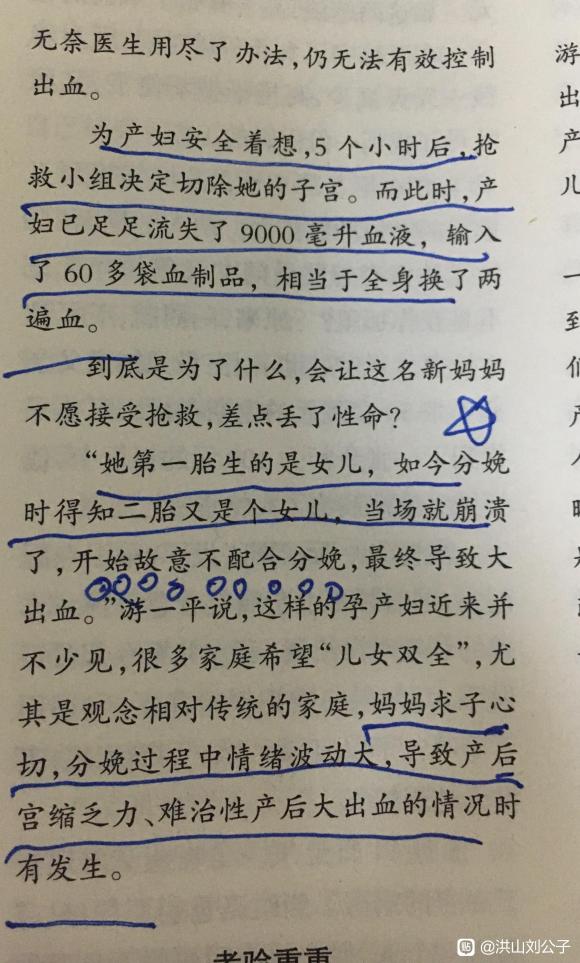 无奈医生用尽了办法,仍无法有效控制
出血。
为产妇安全着想,5个小时后,抢
救小组决定切除她的子宫。而此时,产
妇已足足流失了9000毫升血液,输入
了60多袋血制品,相当于全身换了两
遍血。
到底是为了什么,会让这名新妈妈
不愿接受抢救,差点丢了性命?
“她第一胎生的是女儿,如今分娩
时得知二胎又是个女儿,当场就崩溃
了,开始故意不配合分娩,最终导致大
出血。”游一平说,这样的孕产妇近来并
不少见,很多家庭希望“儿女双全”,尤
其是观念相对传统的家庭,妈妈求子心
切,分娩过程中情绪波动大,导致产后
宫缩乏力、难治性产后大出血的情况时
有发生。
考验重重
游
出
产
儿
一
到
们
产
@洪山刘公子